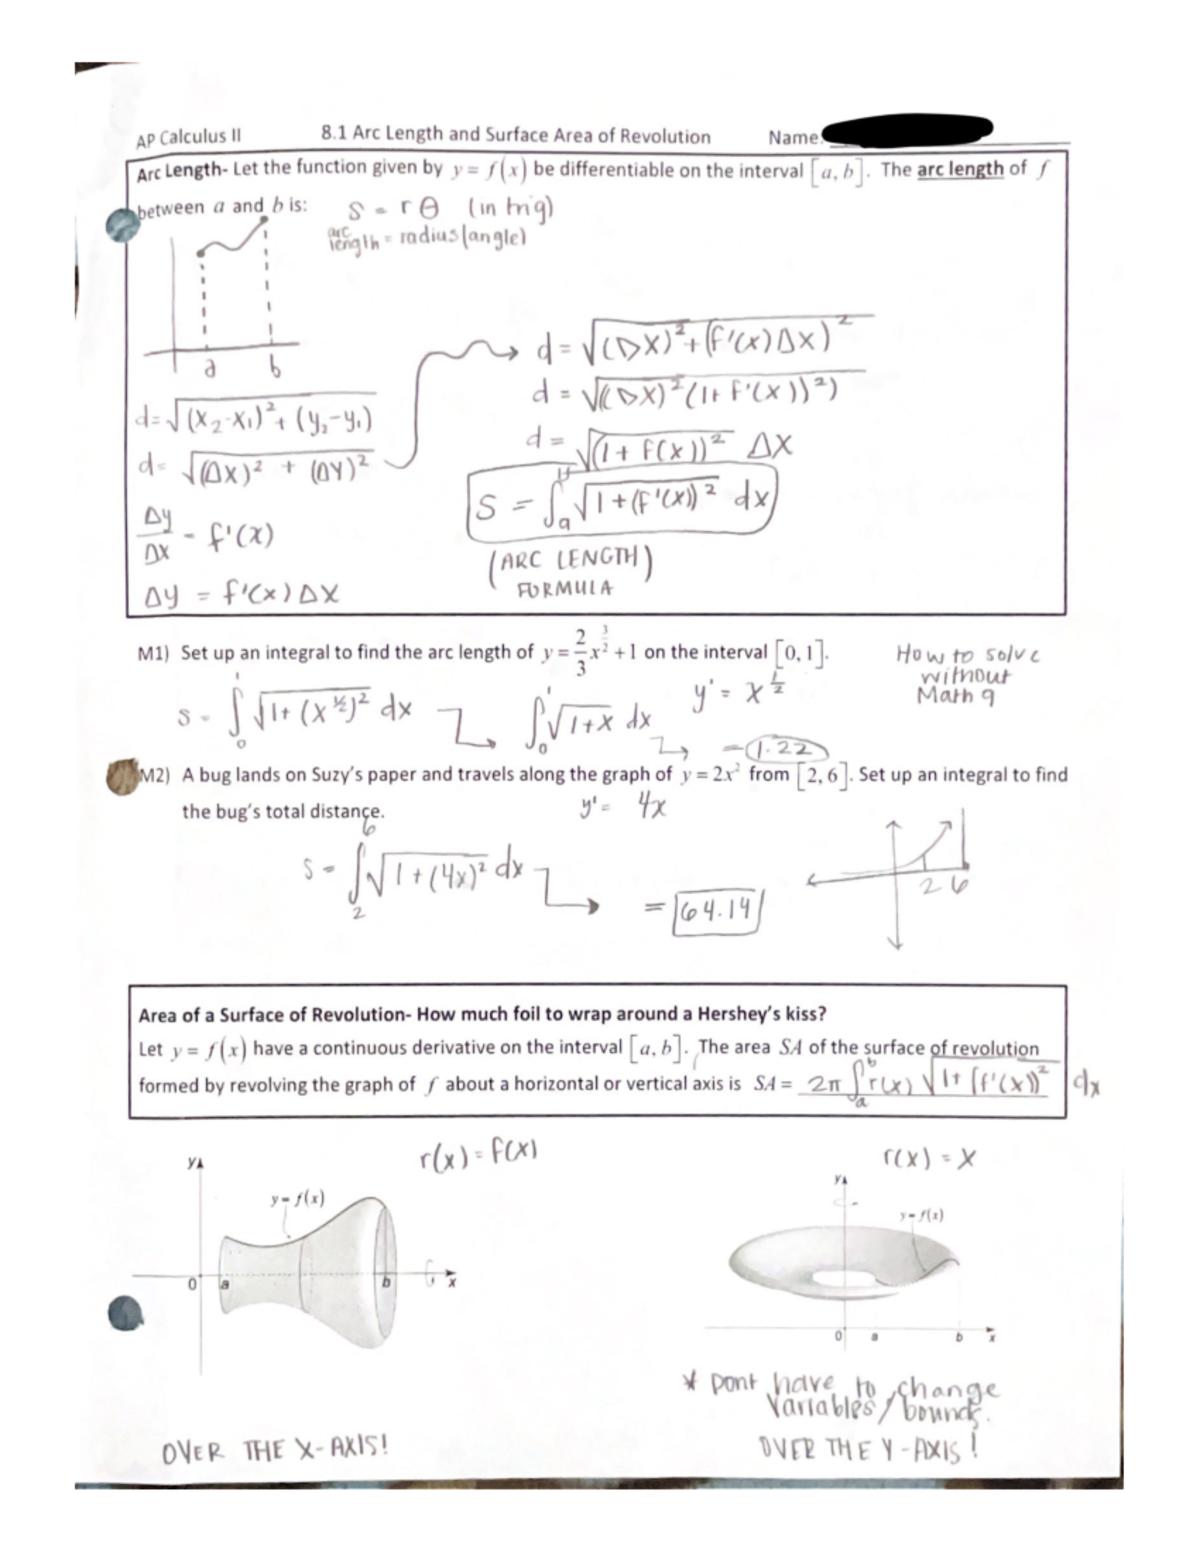 AP Calculus II 8.1 Arc Length and Surface Area of Revolution Name:
Arc Length- Let the function given by y = f(x) be differentiable on the interval [a, b]. The arc length of f
between a and b is: S = rθ (in trig)
arc length = radius(angle)
a b
d = √((x₂-x₁)² + (y₂-y₁)
d = √((Δx)² + (Δy)²
Δy/Δx = f'(x)
Δy = f'(x)Δx
d = √((Δx)² + (f'(x)Δx)²
d = √((Δx)²(1+ f'(x))²)
d = √(1 + f(x))² Δx
S = ∫ₐᵇ √(1+(f'(x))² dx
(ARC LENGTH)
FORMULA
M1) Set up an integral to find the arc length of y = 2/3 x^(3/2) + 1 on the interval [0, 1].
How to solve
without
Math 9
y' = x^(1/2)
S = ∫₀¹ √(1+ (x^½)² dx ∫₀¹ √(1+x dx
= 1.22
M2) A bug lands on Suzy's paper and travels along the graph of y = 2x² from [2, 6]. Set up an integral to find
the bug's total distance. y' = 4x
S = ∫₂⁶ √(1+(4x)² dx = 64.14
2 6
Area of a Surface of Revolution- How much foil to wrap around a Hershey's kiss?
Let y = f(x) have a continuous derivative on the interval [a, b]. The area SA of the surface of revolution
formed by revolving the graph of f about a horizontal or vertical axis is SA = 2π ∫ₐᵇ r(x) √(1+ [f'(x))² dx
r(x) = f(x) r(x) = x
y
y = f(x)
0 a b x
y
y = f(x)
0 a b x
* Dont have to change
variables/bounds.
OVER THE X-AXIS! OVER THE Y-AXIS!